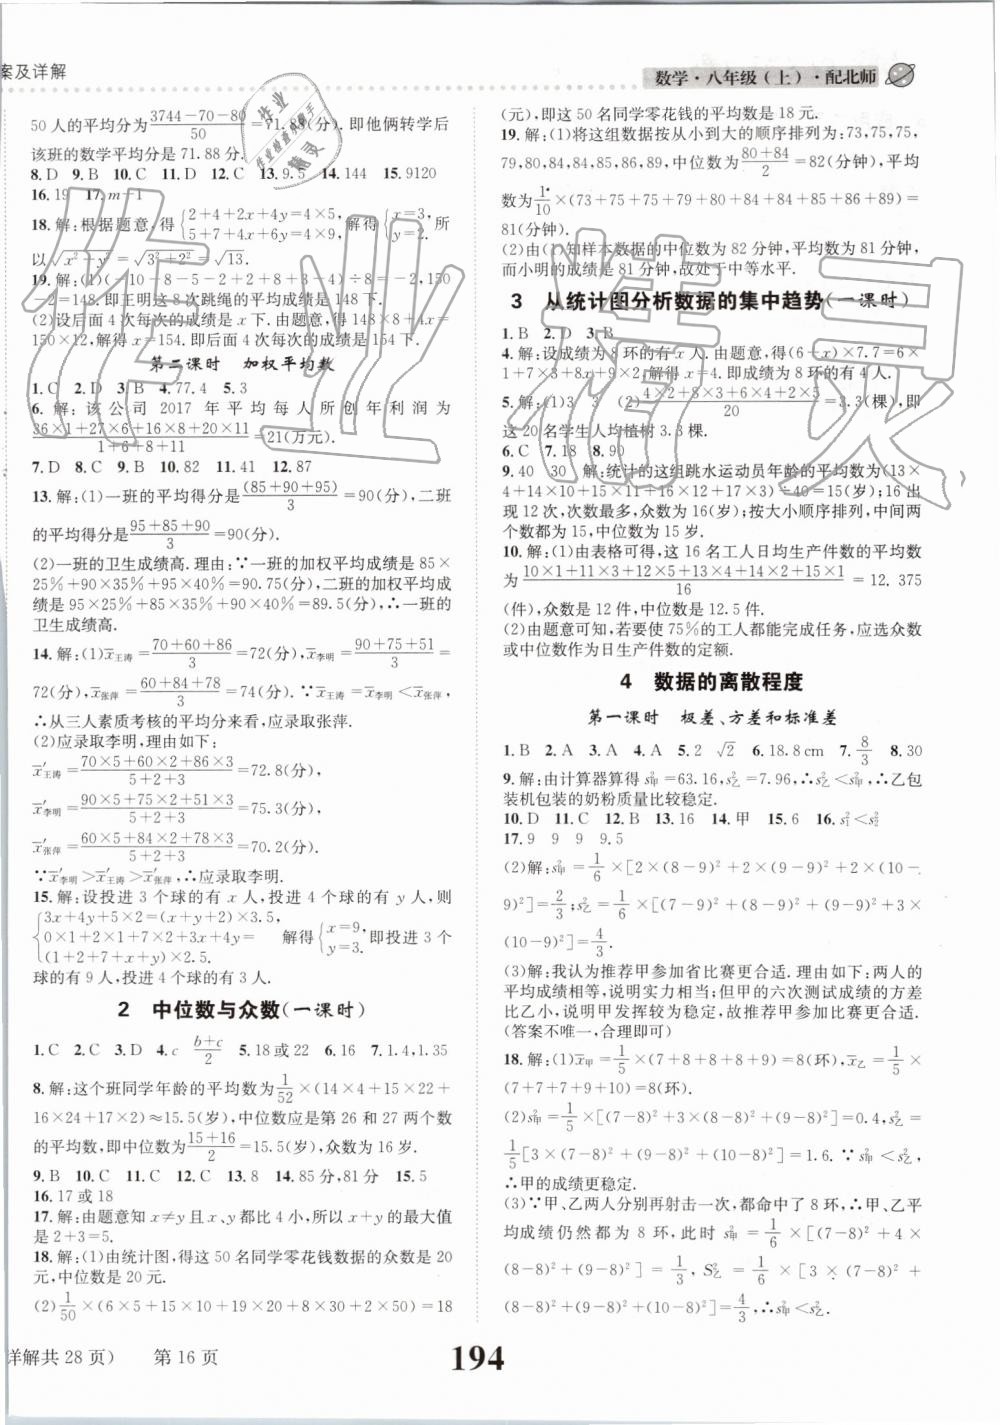 案及详解
数学·八年级(上)·配北师
50人的平均分为(3744-70-80)/50=71.88(分).即他俩转学后
该班的数学平均分是71.88分.
8.D 9.B 10.C 11.D 12.C 13.9.5 14.144 15.9120
16.19 17.m-1
18.解:根据题意,得{2+4+2x+4y=4×5, 5+7+4x+6y=4×9, 解得{x=3, y=2. 所
以√(x²+y²)=√(3²+2²)=√13.
19.解:(1)(-10+8-5-2+6+8+3+4)÷8=-2,150
-2=148,即王明这8次跳绳的平均成绩是148下.
(2)设后面4次每次的成绩是x下.由题意,得148×8+4x=
150×12,解得x=154.即后面4次每次的成绩是154下.
第二课时 加权平均数
1.C 2.D 3.B 4.77.4 5.3
6.解:该公司2017年平均每人所创年利润为
(36×1+27×6+16×8+20×11)/(1+6+8+11)=21(万元).
7.D 8.C 9.B 10.82 11.12 12.87
13.解:(1)一班的平均得分是(85+90+95)/3=90(分),二班
的平均得分是(95+85+90)/3=90(分).
(2)一班的卫生成绩高.理由:∵一班的加权平均成绩是85×
25%+90×35%+95×40%=90.75(分),二班的加权平均成
绩是95×25%+85×35%+90×40%=89.5(分),∴一班的
卫生成绩高.
14.解:(1)x̄王涛=(70+60+86)/3=72(分),x̄李明=(90+75+51)/3=
72(分),x̄张萍=(60+84+78)/3=74(分).∵x̄王涛=x̄李明<x̄张萍,
∴从三人素质考核的平均分来看,应录取张萍.
(2)应录取李明,理由如下:
x̄′王涛=(70×5+60×2+86×3)/(5+2+3)=72.8(分),
x̄′李明=(90×5+75×2+51×3)/(5+2+3)=75.3(分),
x̄′张萍=(60×5+84×2+78×3)/(5+2+3)=70.2(分).
∵x̄′李明>x̄′王涛>x̄′张萍,∴应录取李明.
15.解:设投进3个球的有x人,投进4个球的有y人,则
{3x+4y+5×2=(x+y+2)×3.5, 0×1+2×1+7×2+3x+4y=(1+2+7+x+y)×2.5. 解得{x=9, y=3. 即投进3个
球的有9人,投进4个球的有3人.
2 中位数与众数(一课时)
1.C 2.C 3.D 4.c (b+c)/2 5.18或22 6.16 7.1.4,1.35
8.解:这个班同学年龄的平均数为1/52×(14×4+15×22+
16×24+17×2)≈15.5(岁),中位数应是第26和27两个数
的平均数,即中位数为(15+16)/2=15.5(岁),众数为16岁.
9.B 10.C 11.C 12.C 13.8 14.85,81分 15.5
16.17或18
17.解:由题意知x≠y且x、y都比4小,所以x+y的最大值
是2+3=5.
18.解:(1)由统计图,得这50名同学零花钱数据的众数是20
元,中位数是20元.
(2)1/50×(6×5+15×10+19×20+8×30+2×50)=18
(元),即这50名同学零花钱的平均数是18元.
19.解:(1)将这组数据按从小到大的顺序排列为:73,75,75,
79,80,84,85,86,84,89,中位数为(80+84)/2=82(分钟),平均
数为1/10×(73+75+75+79+80+84+85+86+84+89)=
81(分钟).
(2)由(1)知样本数据的中位数为82分钟,平均数为81分钟,
而小明的成绩是81分钟,故处于中等水平.
3 从统计图分析数据的集中趋势(一课时)
1.B 2.D 3.B
4.解:设成绩为8环的有x人.由题意,得(6+x)×7.7=6×
1+7×3+9×2+8x,解得x=4.即成绩为8环的有4人.
5.解:(1)3 3 (2)(4×2+8×3+6×4+2×5)/20=3.3(棵),即
这20名学生人均植树3.3棵.
6.C 7.18 8.90
9.40 30 解:统计的这组跳水运动员年龄的平均数(13×
4+14×10+15×11+16×12+17×3)÷40=15(岁);16出
现12次,次数最多,众数为16(岁);按大小顺序排列,中间两
个数都为15,中位数为15岁.
10.解:(1)由表格可得,这16名工人日均生产件数的平均数
为(10×1+11×3+12×5+13×4+14×2+15×1)/16=12.375
(件),众数是12件,中位数是12.5件.
(2)由题意可知,若要使75%的工人都能完成任务,应选众数
或中位数作为日生产件数的定额.
4 数据的离散程度
第一课时 极差、方差和标准差
1.B 2.A 3.A 4.A 5.2 √2 6.18.8cm 7.8/3 8.30
9.解:由计算器算得s²甲=63.16,s²乙=7.96,∴s²乙<s²甲,∴乙包
装机包装的奶粉质量比较稳定.
10.D 11.C 12.B 13.16 14.甲 15.6 16.s²₁<s²₂
17.9 9 9 9.5
(2)解:s²甲=1/6×[2×(8-9)²+2×(9-9)²+2×(10-
9)²]=2/3;s²乙=1/6×[(7-9)²+(8-9)²+(9-9)²+3×
(10-9)²]=4/3.
(3)解:我认为推荐甲参加省比赛更合适.理由如下:两人的
平均成绩相等,说明实力相当;但甲的六次测试成绩的方差
比乙小,说明甲发挥较为稳定,故推荐甲参加比赛更合适.
(答案不唯一,合理即可)
18.解:(1)x̄甲=1/5×(7+8+8+8+9)=8(环),x̄乙=1/5×
(7+7+7+9+10)=8(环).
(2)s²甲=1/5×[(7-8)²+3×(8-8)²+(9-8)²]=0.4,s²乙=
1/5[3×(7-8)²+(9-8)²+(10-8)²]=1.6.∵s²甲<s²乙,
∴甲的成绩更稳定.
(3)∵甲、乙两人分别再射击一次,都命中了8环,∴甲、乙平
均成绩仍然都为8环,此时s²甲=1/6×[(7-8)²+4×
(8-8)²+(9-8)²]=1/3,S²乙=1/6×[3×(7-8)²+
(8-8)²+(9-8)²+(10-8)²]=4/3,∴s²甲<s²乙.
详解共28页) 第16页
194
作业精灵